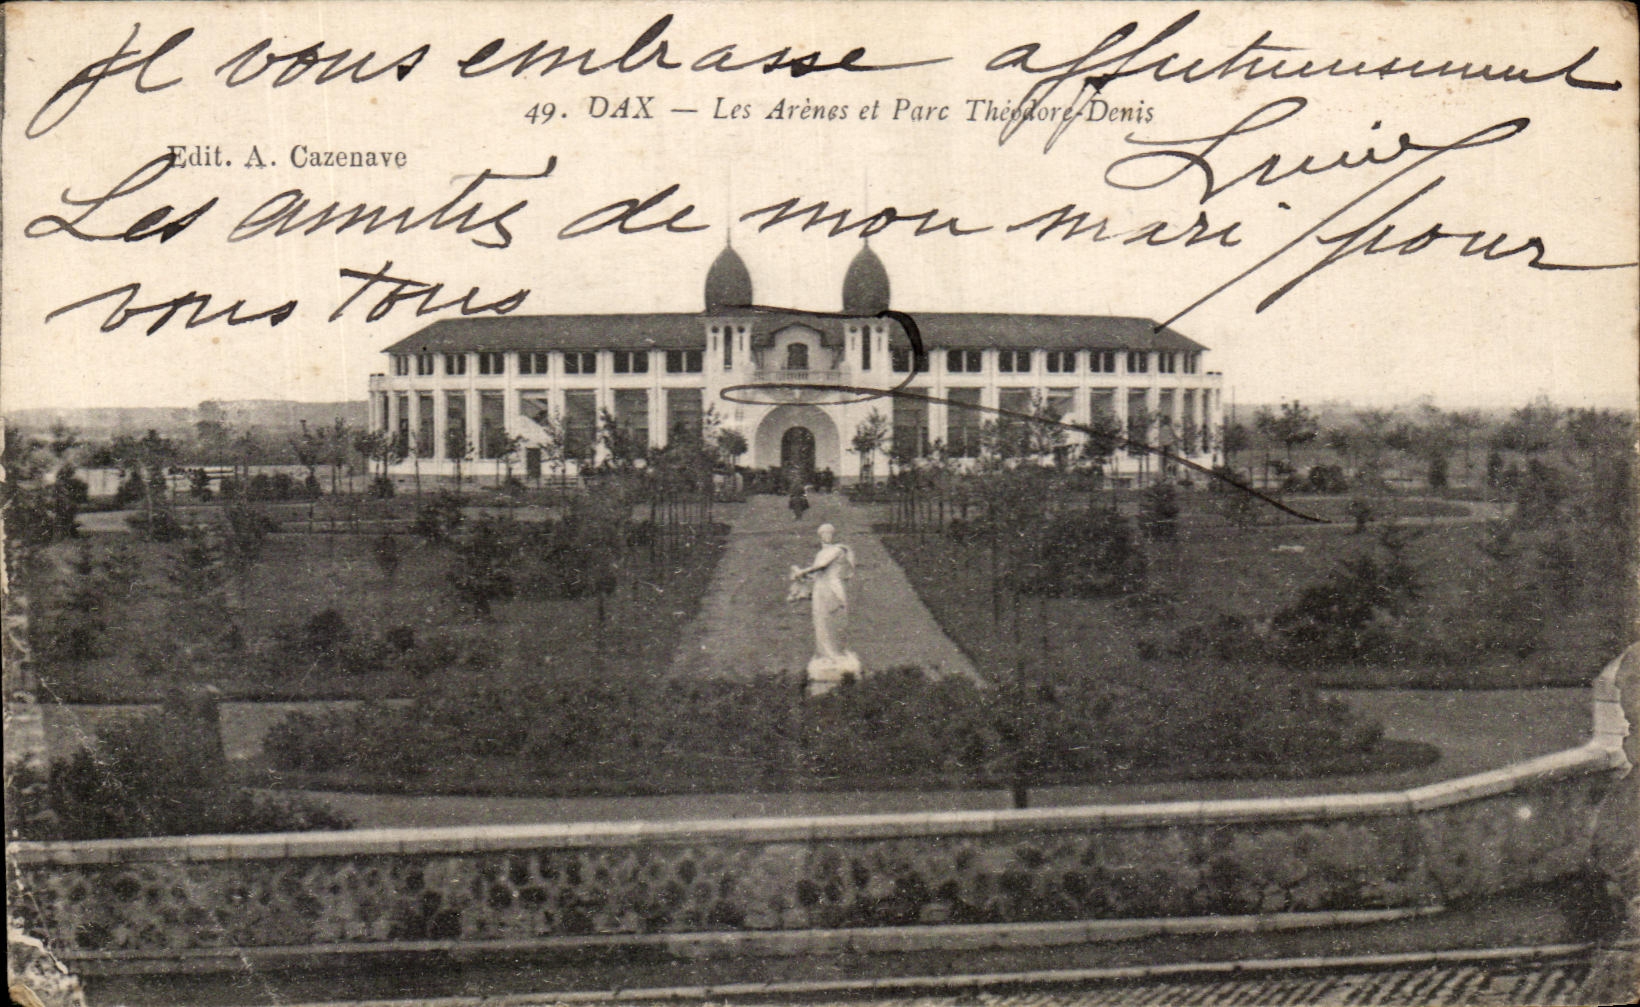 Je vous embrasse affectueusement
49. DAX — Les Arènes et Parc Théodore-Denis
Edit. A. Cazenave
Les amitiés de mon mari pour
vous tous